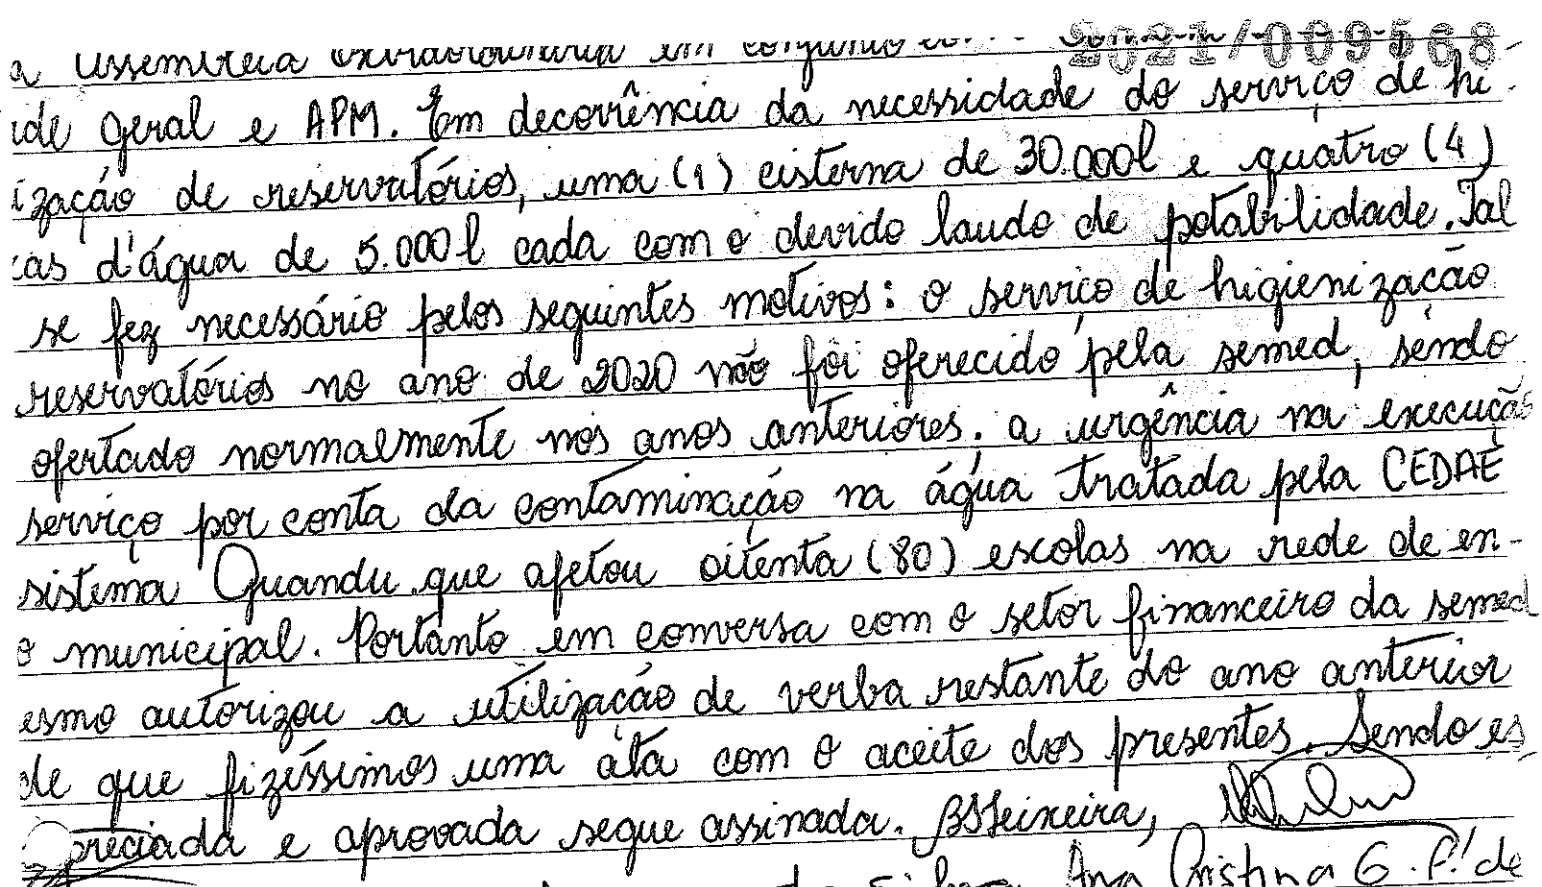 2021/009568
a assembleia extraordinária em conjunto
ide geral e APM. Em decorrência da necessidade do serviço de hi-
ização de reservatórios, uma (1) cisterna de 30.000l e quatro (4)
cas d'água de 5.000l cada com o devido laudo de potabilidade. Tal
se fez necessário pelos seguintes motivos: o serviço de higienização
reservatórios no ano de 2020 não foi oferecido pela semed, sendo
ofertado normalmente nos anos anteriores; a urgência na execução
serviço por conta da contaminação na água tratada pela CEDAE
sistema Guandu que afetou oitenta (80) escolas na rede de en-
o municipal. Portanto em conversa com o setor financeiro da semed
esmo autorizou a utilização de verba restante do ano anterior
de que fizéssimos uma áta com o aceite dos presentes. Sendo es
preciada e aprovada segue assinada. BSTeixeira,
Ana Cristina G. F. de